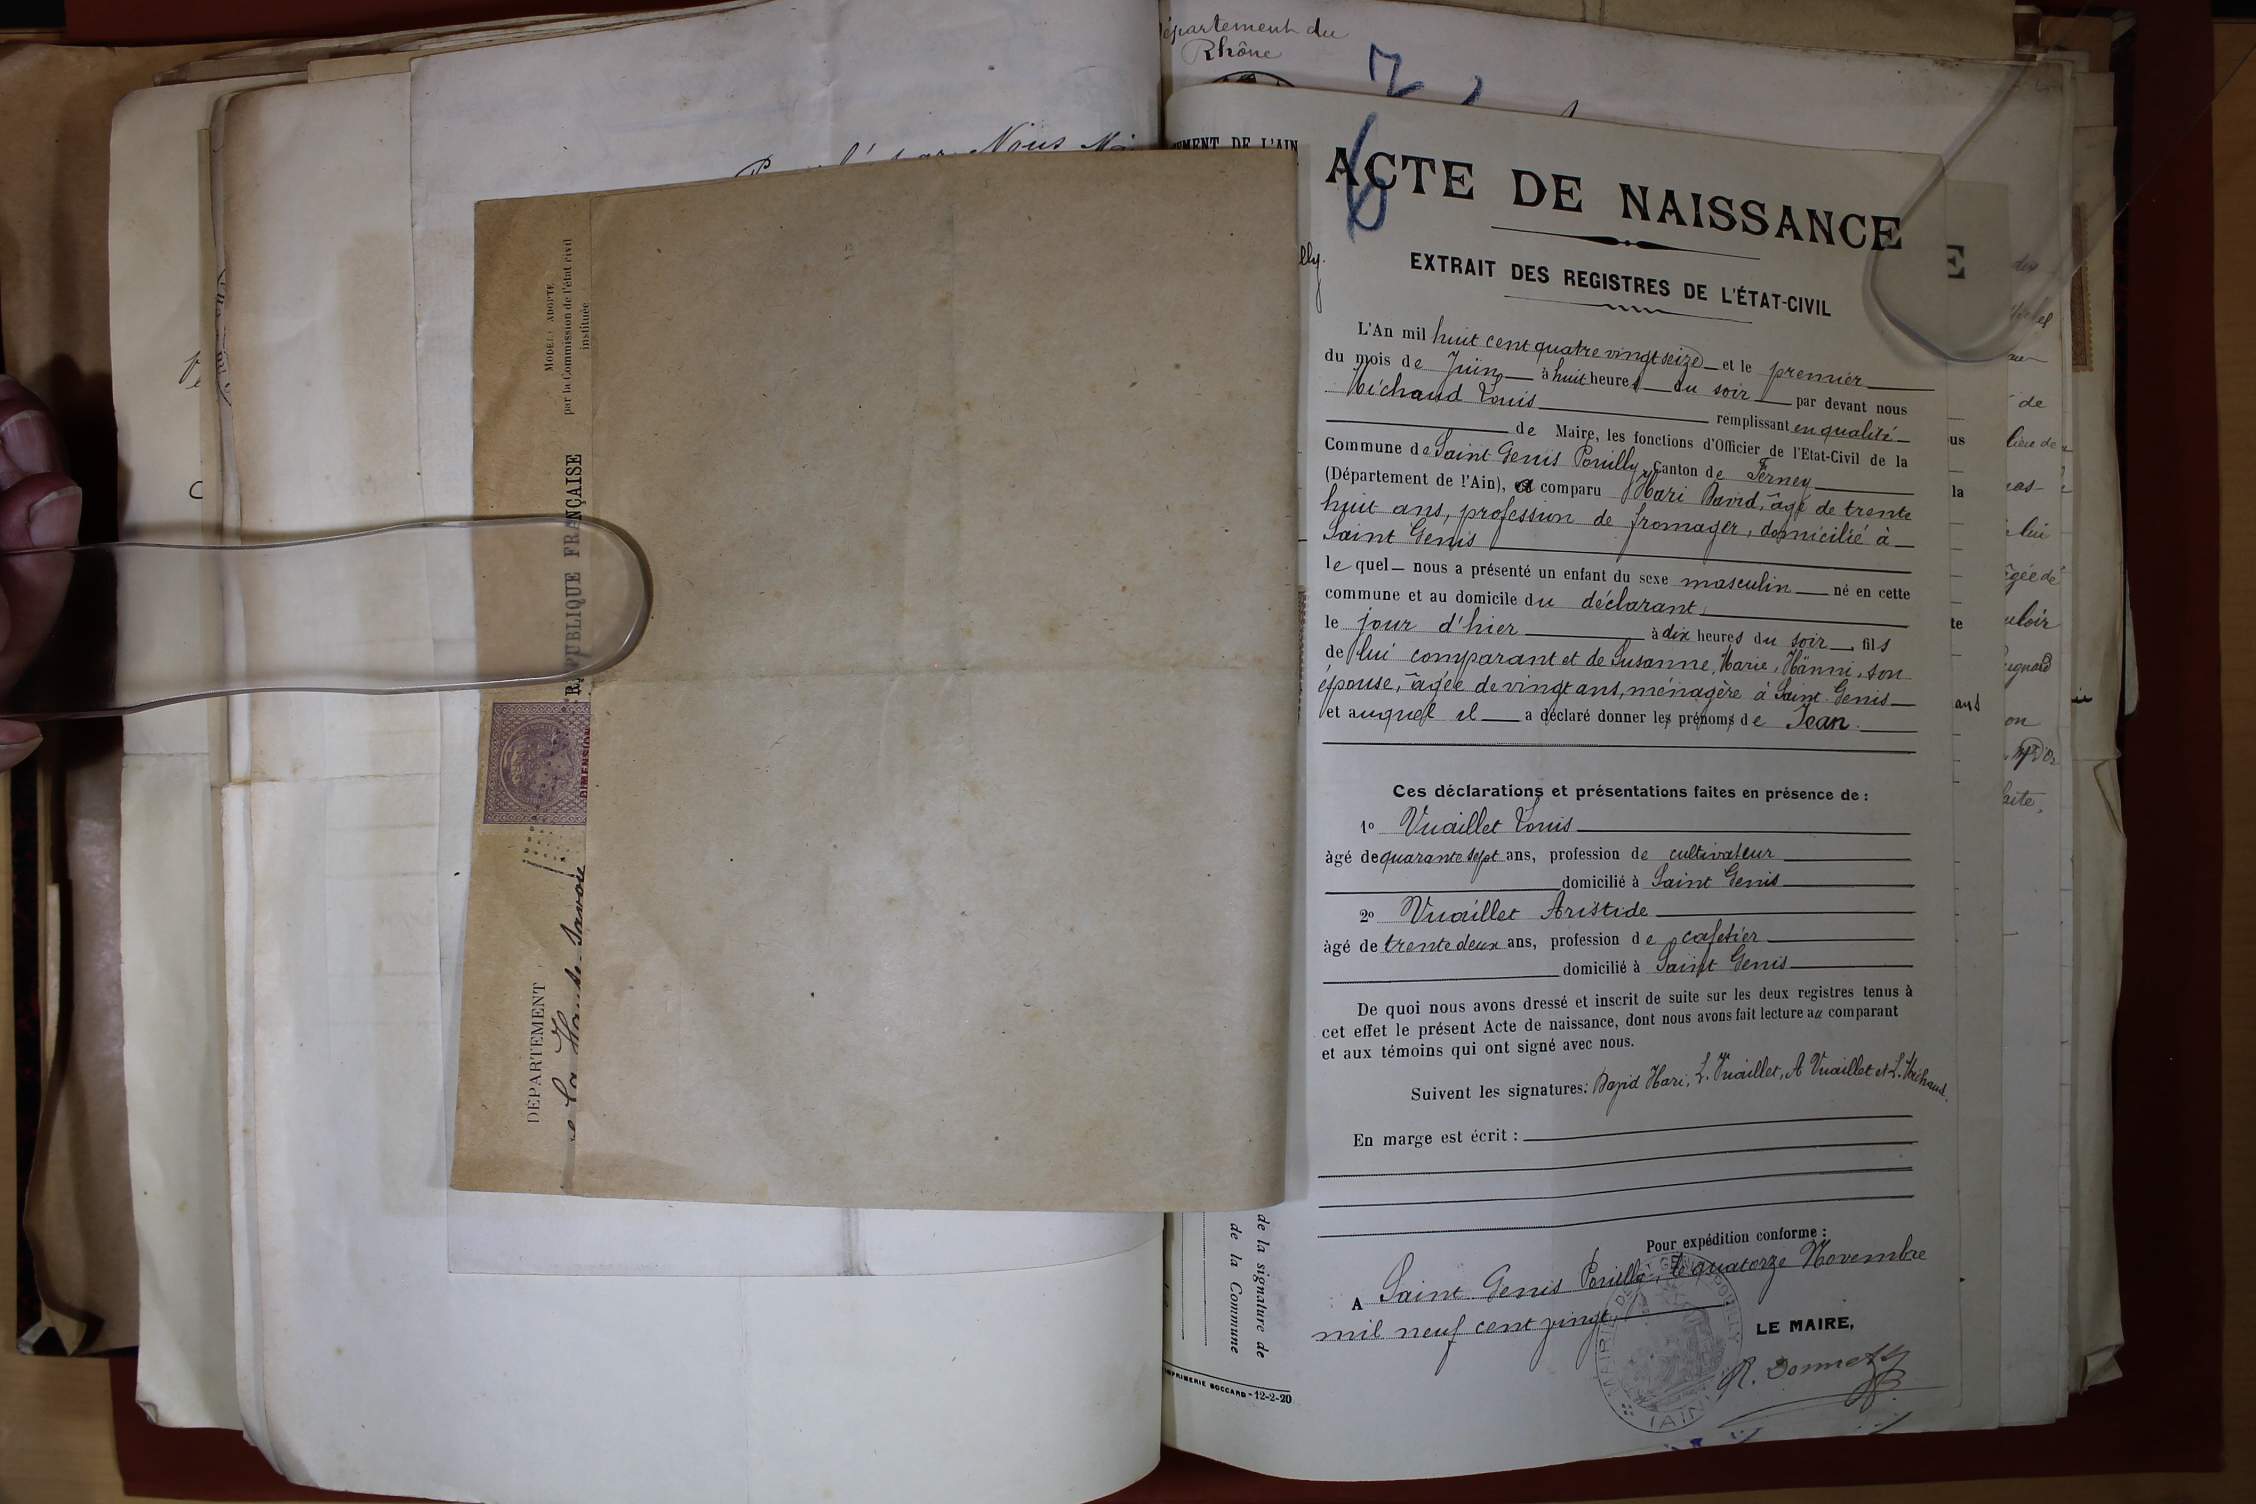 Département du
Rhône
Nous
MODÈLE ADOPTÉ
par la Commission de l'état civil
instituée
RÉPUBLIQUE FRANÇAISE
DIMENSION
DÉPARTEMENT
de la Haute-Savoie
DE L'AIN
lly.
ACTE DE NAISSANCE
EXTRAIT DES REGISTRES DE L'ÉTAT-CIVIL
L'An mil huit cent quatre vingt seize et le premier
du mois de Juin à huit heures du soir par devant nous
Michaud Louis remplissant en qualité
de Maire, les fonctions d'Officier de l'Etat-Civil de la
Commune de Saint Genis Pouilly, Canton de Ferney
(Département de l'Ain), a comparu Hari David, âgé de trente
huit ans, profession de fromager, domicilié à
Saint Genis
le quel nous a présenté un enfant du sexe masculin né en cette
commune et au domicile du déclarant
le jour d'hier à dix heures du soir, fils
de lui comparant et de Susanne, Marie, Hänni, son
épouse, âgée de vingt ans, ménagère à Saint-Genis
et auquel il a déclaré donner les prénoms de Jean.
Ces déclarations et présentations faites en présence de :
1º Vuaillet Louis
âgé de quarante sept ans, profession de cultivateur
domicilié à Saint Genis
2º Vuaillet Aristide
âgé de trente deux ans, profession de cafetier
domicilié à Saint Genis
De quoi nous avons dressé et inscrit de suite sur les deux registres tenus à
cet effet le présent Acte de naissance, dont nous avons fait lecture au comparant
et aux témoins qui ont signé avec nous.
Suivent les signatures: David Hari, L. Vuaillet, A Vuaillet et L. Michaud.
En marge est écrit :
Pour expédition conforme :
A Saint Genis Pouilly, le quatorze Novembre
mil neuf cent vingt
LE MAIRE,
MAIRIE DE GENIS-POUILLY
(AIN)
de la signature de
de la Commune
IMPRIMERIE BOCCARD - 12-2-20
E
us
la
te
ans
de
lui
âgée de
on